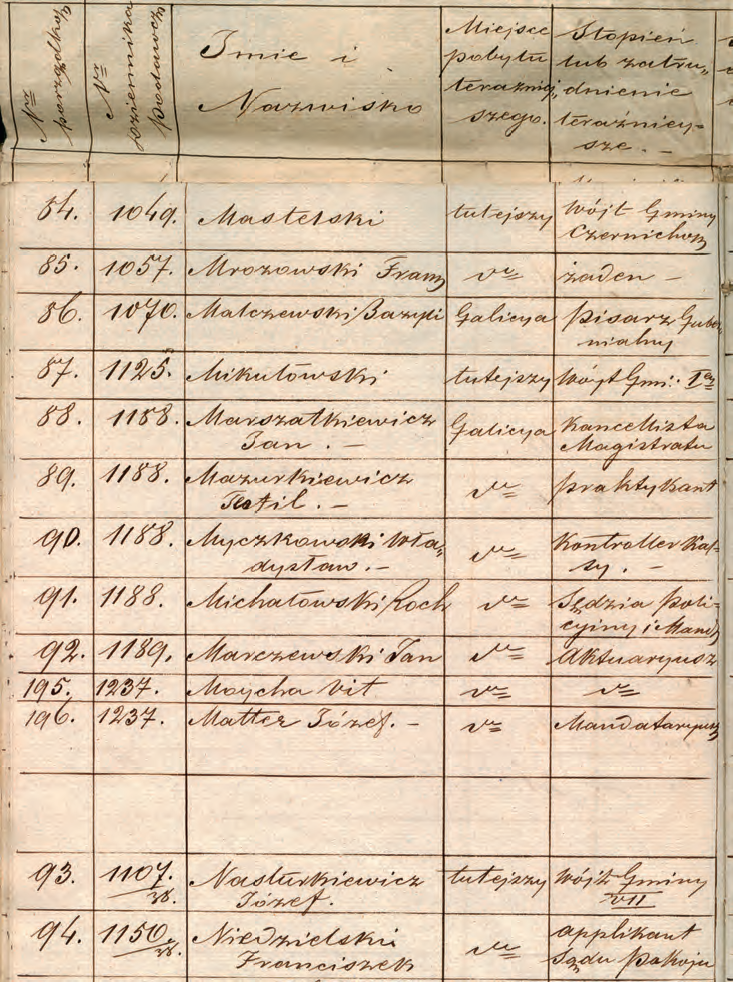 Nr porządkowy
Nr Dziennika Podawczy
Imie i
Nazwisko
Miejsce
pobytu
teraźniej„
szego.
Stopień
lub zatru„
dnienie
teraźniey-
sze. —
84. 1049. Mastelski tutejszy Wójt Gminy
Czernichow
85. 1057. Mrozowski Franz vo żaden —
86. 1070. Malczewski Bazyli Galicya Pisarz Guber„
nialny
87. 1125. Mikułowski tutejszy Wójt Gmi: Iej
88. 1188. Marszałkiewicz Galicya Kancellista
Jan. — Magistratu
89. 1188. Mazurkiewicz vo praktykant
Teofil. —
90. 1188. Myczkowski Wła„ vo Kontroller Kas-
dysław. — sy. —
91. 1188. Michałowski Roch vo Sędzia Poli-
cyjny i Mand
92. 1189. Marczewski Jan vo Aktuaryusz
195. 1237. Moycha Vit vo vo
196. 1237. Matter Józef. — vo Mandataryusz
93. 1107./38. Nasturkiewicz tutejszy Wójt Gminy
Józef. VII
94. 1150./38. Niedzielski vo applikant
Franciszek Sądu Pokoju